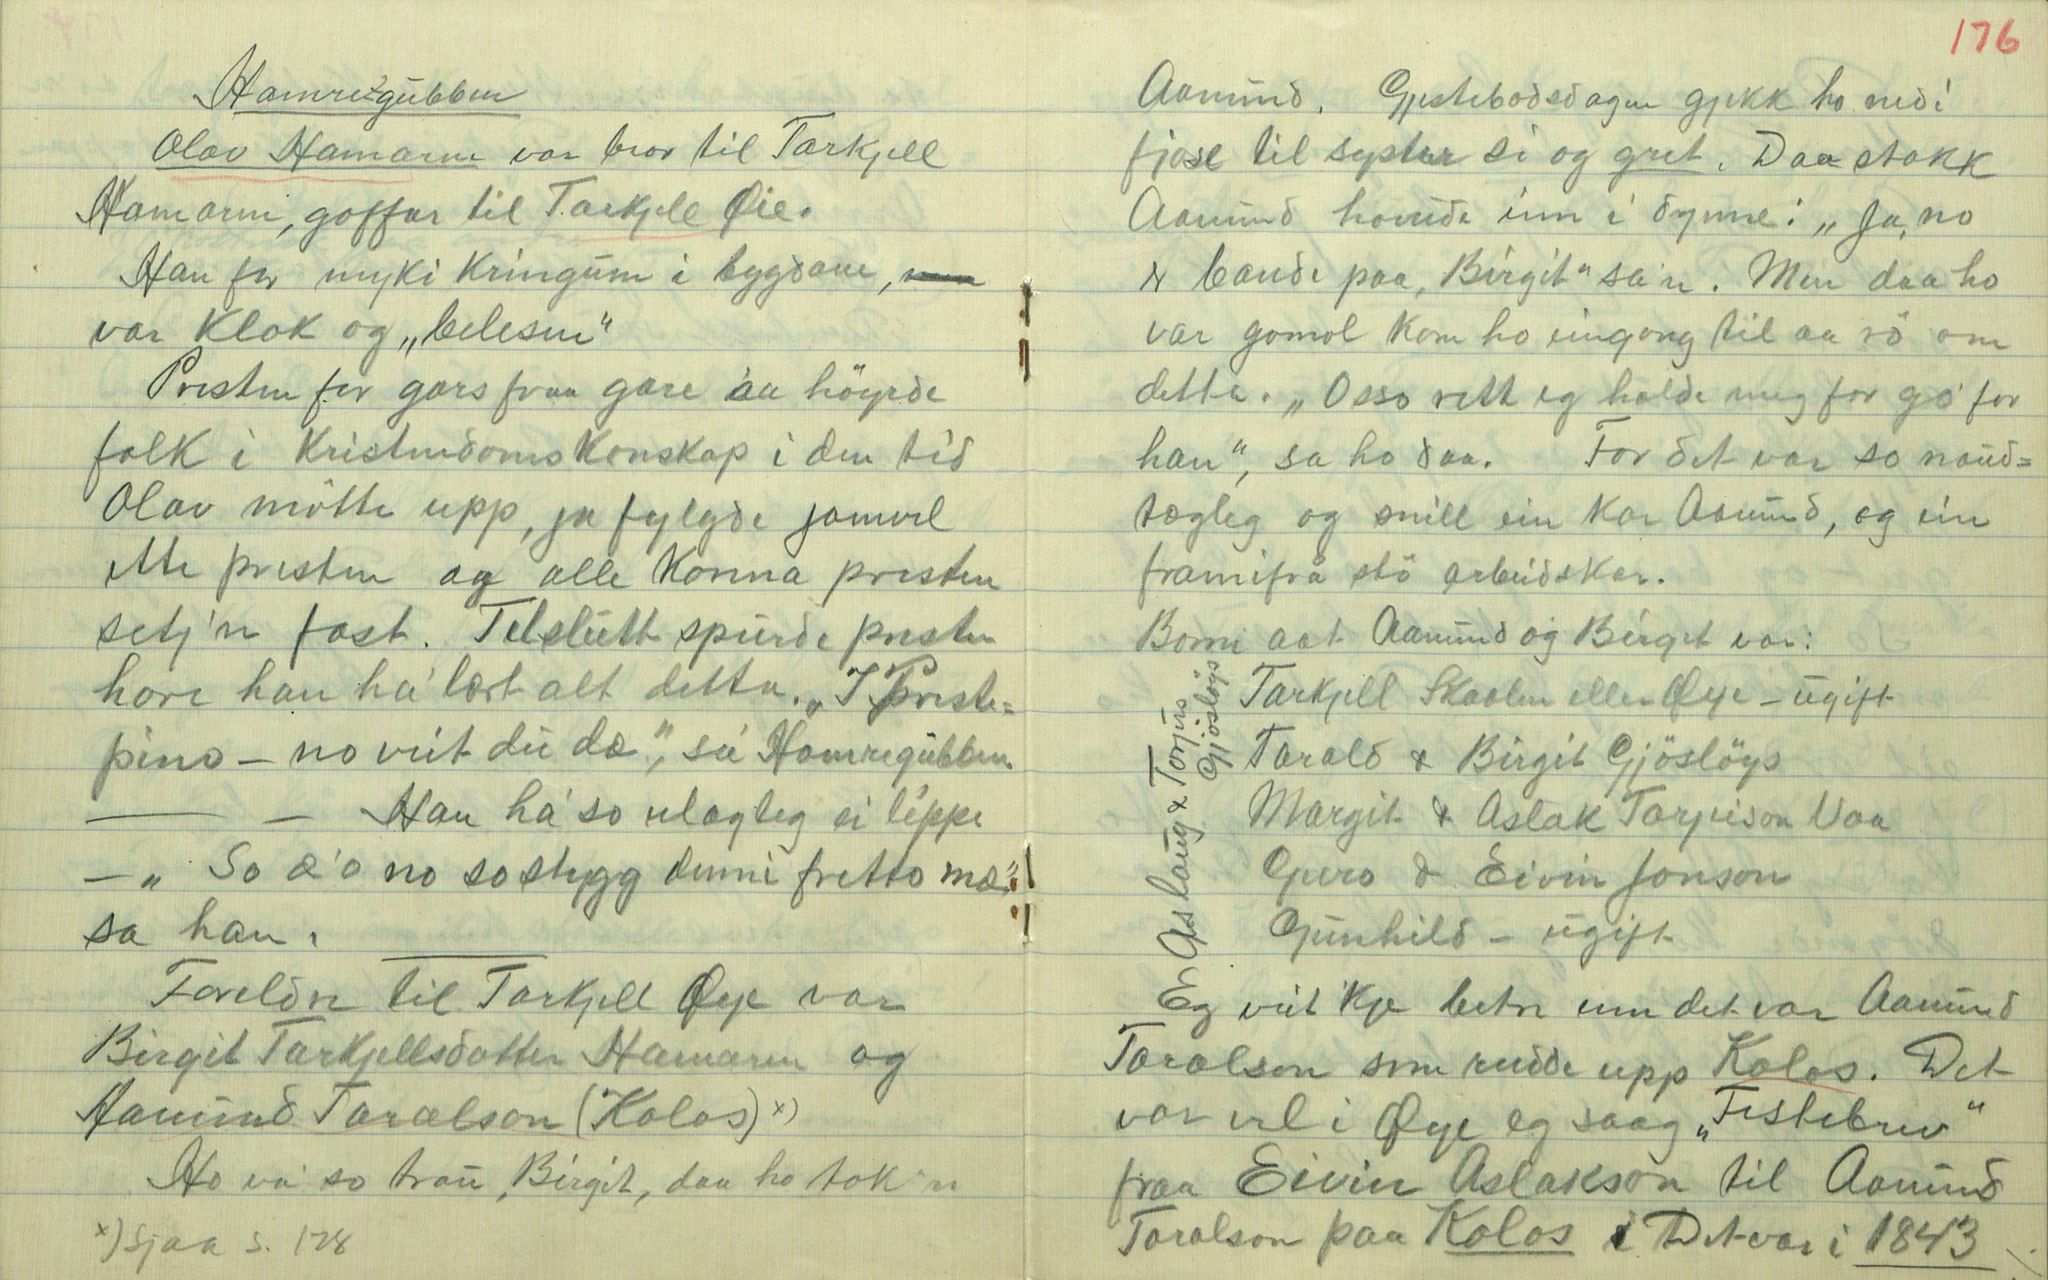 Hamregubben
Olav Hamaren var bror til Tarkjell
Hamaren, goffar til Tarkjell Øie.
Han for myki kringum i bygdane,
var klok og „belesen“
Presten for gars fraa gare aa höyrde
folk i Kristendomskonskap i den tid
Olav mötte upp, ja fylgde jamvel
ette presten og alle konna presten
setj'n fast. Telslutt spurde presten
hore han ha' lært alt detta. „I Preste-
pino – no veit du dæ“, sa' Hamregubben
— – Han ha' so ulagleg ei lippe
– „So æ'o no so stygg denni fretto mæ“
sa han.
Foreldre til Tarkjell Øye var
Birgit Tarkjellsdotter Hamaren og
Aamund Taralson (Kolos) x)
Ho va' so trau, Birgit, daa ho tok'n
x) Sjaa s. 178
176
Aamund. Gjestebodsdagen gjekk ho ned i
fjose til syster si og gret. Daa stakk
Aamund hovude inn i dynne: „Ja, no
æ bande paa, Birgit“ sa'n. Men daa ho
var gomol kom ho eingong til aa rö om
detta. „Osso vett eg halde meg for go' for
han“, sa ho daa. For det var so naud-
tægleg og snill ein kar Aamund, og ein
framifrå stö arbeidskar.
Borni aat Aamund og Birgit var:
Tarkjell Skaalen eller Øye – ugift
Tarald & Birgit Gjöslöys
Margit & Aslak Tarjeison Vaa
Gjero & Eivin Jonson
Gunhild – ugift
Er Aslaug & Torjus
Gjöslöys
Eg veit 'kje betre enn det var Aamund
Taralson som rudde upp Kolos. Det
var vel i Øye eg saag „Festebrev“
fraa Eivin Aslakson til Aamund
Taralson paa Kolos Det var i 1843